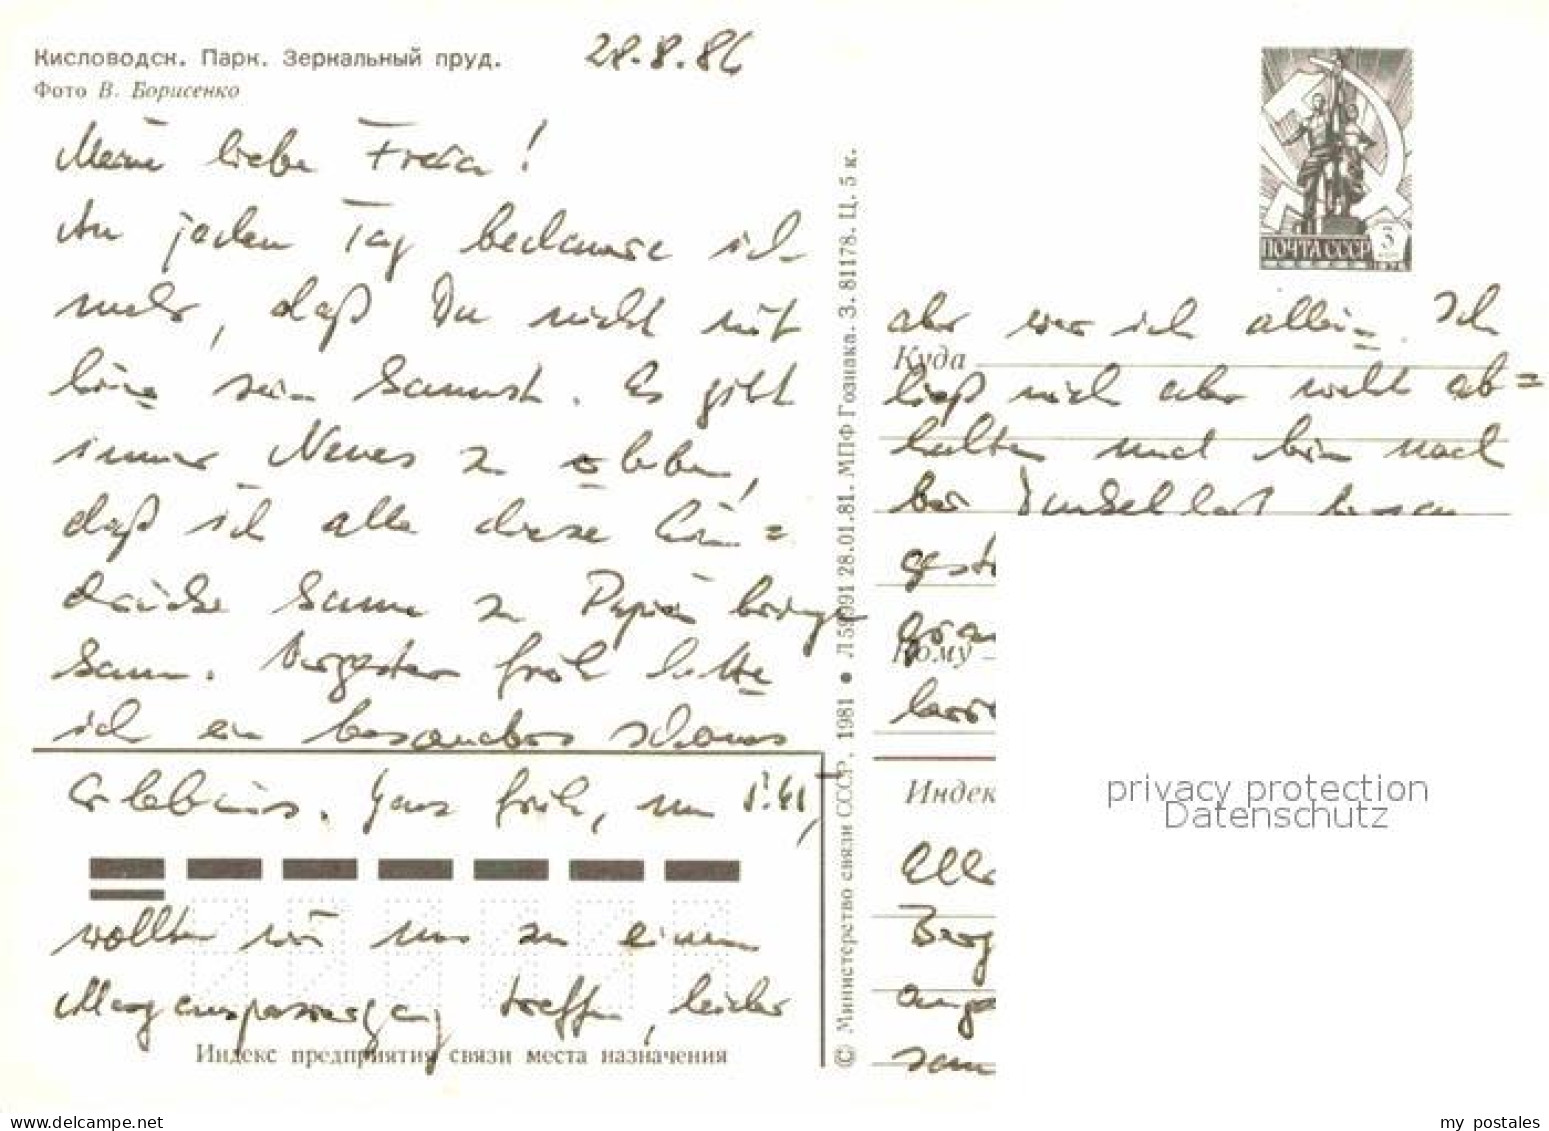 Кисловодск. Парк. Зеркальный пруд.
Фото В. Борисенко
28.8.86
Meine liebe Freia!
An jedem Tag bedauere ich
mehr, daß Du nicht mit
hier sein kannst. Es gibt
immer Neues zu erleben,
daß ich alle diese Ein=
drücke kaum zu Papier bringen
kann. Vorgestern früh hatte
ich ein besonders schönes
Erlebnis. Ganz früh, um 5.45,
wollten wir uns zu einem
Morgenspaziergang treffen, leider
Индекс предприятия связи места назначения
© Министерство связи СССР, 1981 • Л 59991 28.01.81. МПФ Гознака. З. 81178. Ц. 5 к.
ПОЧТА СССР
3
aber war ich allein. Ich
Куда
ließ mich aber nicht ab=
halten und bin noch
bei Dunkelheit
Кому
Индек
Berg
privacy protection
Datenschutz
my postales